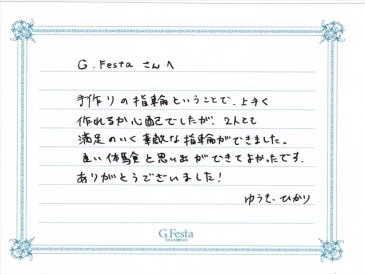 G.Festa さんへ
手作りの指輪ということで、上手く
作れるか心配でしたが、2人とも
満足のいく素敵な指輪ができました。
良い体験と思い出ができてよかったです。
ありがとうございました！
ゆうき、ひかり
G.Festa